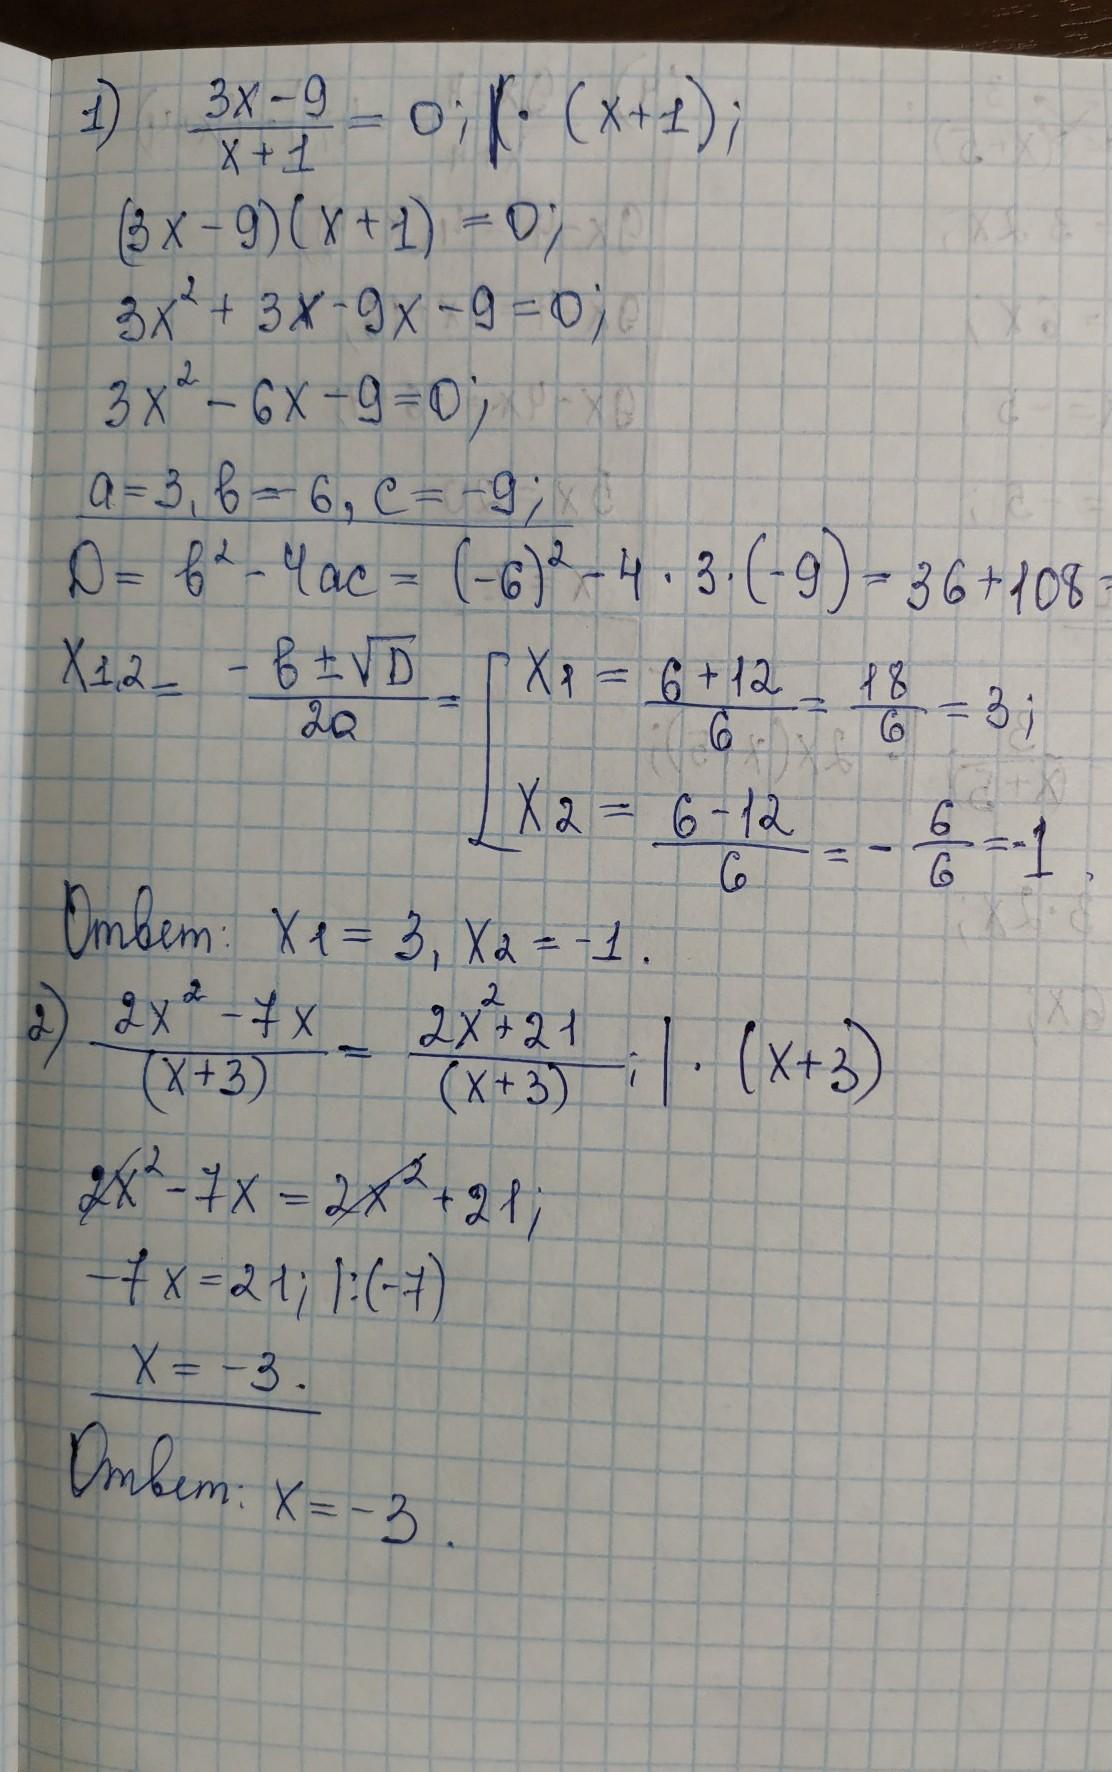 1) (3x-9)/(x+1) = 0; |· (x+1);
(3x-9)(x+1) = 0;
3x² + 3x - 9x - 9 = 0;
3x² - 6x - 9 = 0;
a = 3, в = -6, c = -9;
D = в² - 4ac = (-6)² - 4 · 3 · (-9) = 36 + 108 =
x1,2 = (-в ± √D)/(2a) = [ x1 = (6+12)/6 = 18/6 = 3;
x2 = (6-12)/6 = - 6/6 = -1.
Ответ: x1 = 3, x2 = -1.
2) (2x² - 7x)/((x+3)) = (2x² + 21)/((x+3)); | · (x+3)
2x² - 7x = 2x² + 21;
-7x = 21; |:(-7)
x = -3.
Ответ: x = -3.